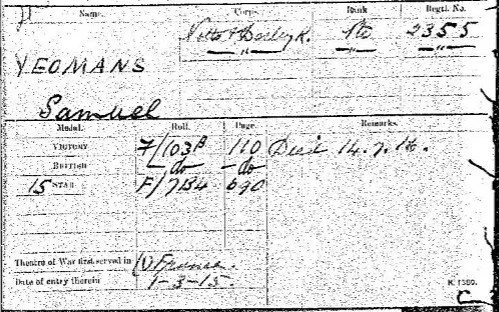 Name. Corps. Rank Regtl. No.
Notts & Derby R. Pte 2355
YEOMANS — " — — " — — " —
Samuel
Medal. Roll. Page Remarks.
VICTORY F/103B 110 Died 14.7.16.
BRITISH — do — — do —
15 STAR F/7B4 690
Theatre of War first served in (1) France.
Date of entry therein 1-3-15.
K. 1380.